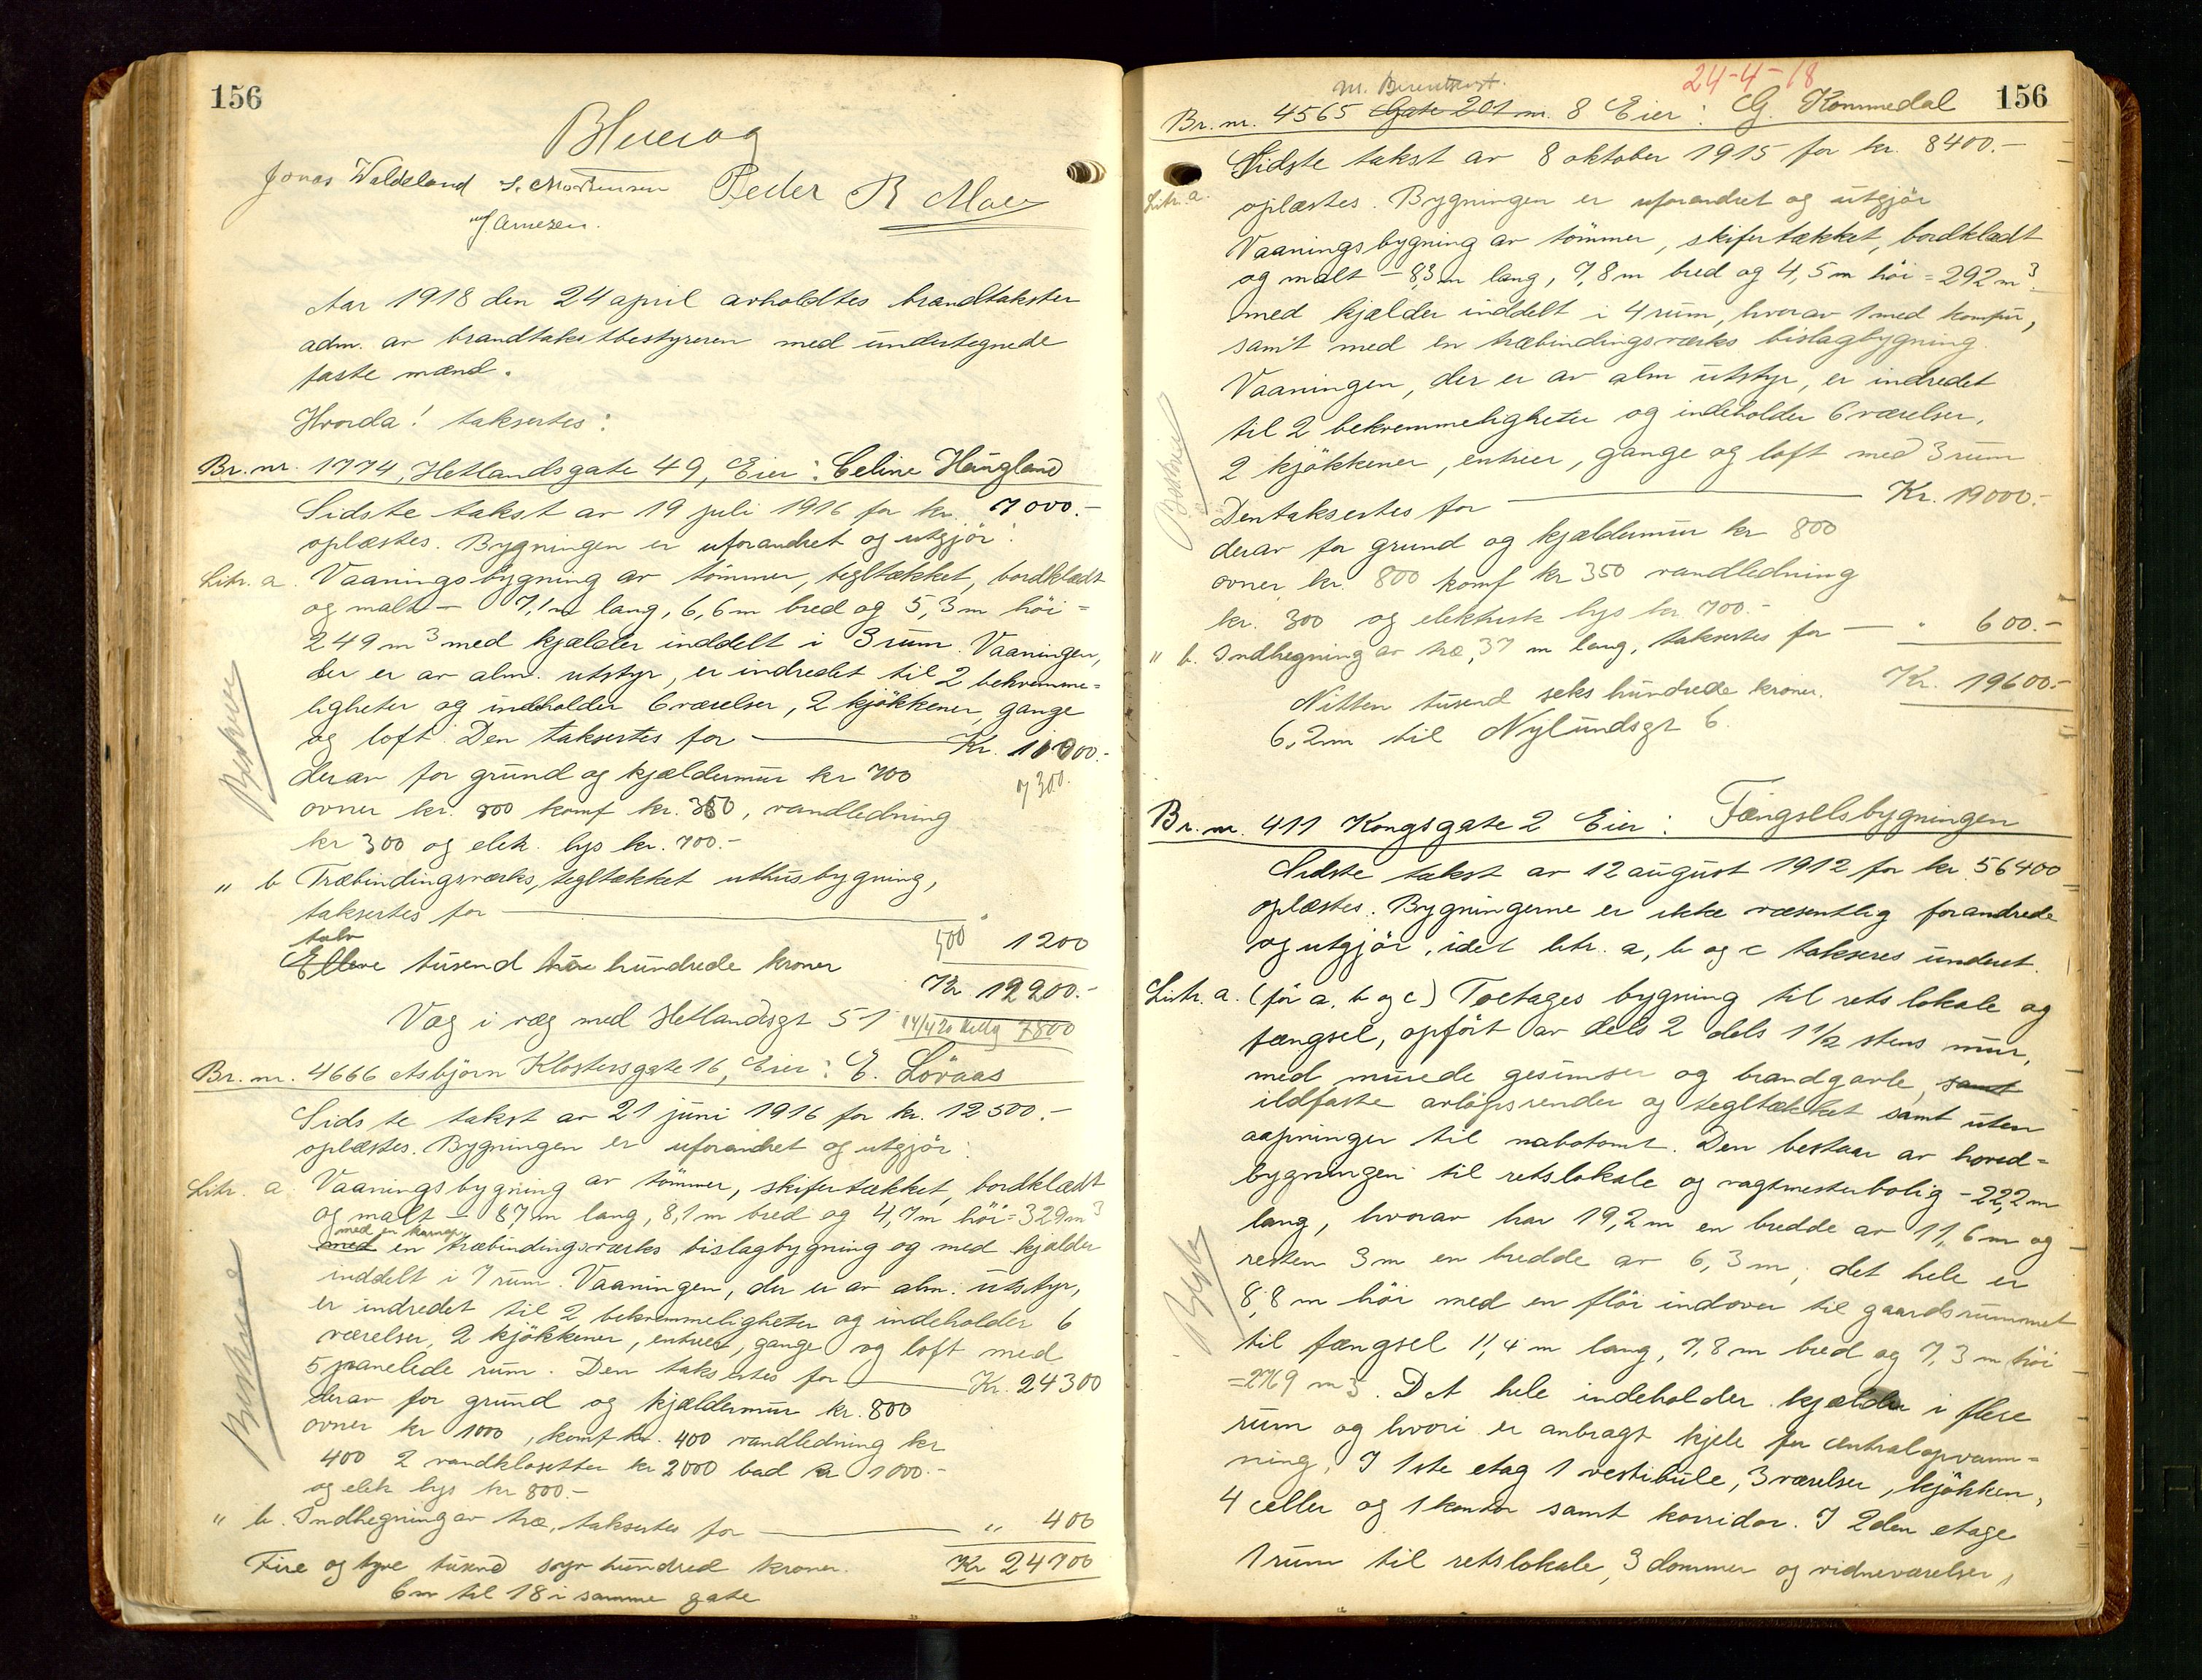 156
Jonas Waldeland S. Mortensen Peder R Moe
Aar 1918 den 24 april avholdtes brandtakster
adm. av brandtakstbestyreren med undertegnede
faste mænd.
Hvorda! taksertes:
Br. nr. 1774, Hetlandsgate 49, Eier: Celine Haugland
Sidste takst av 19 juli 1916 for kr. 7000.-
oplæstes. Bygningen er uforandret og utgjör:
Litr. a. Vaaningsbygning av tömmer, tegltækket, bordklædt
og malt - 7,1 m lang, 6,6 m bred og 5,3 m höi =
249 m3 med kjælder inddelt i 3 rum. Vaaningen,
der er av alm. utstyr, er indredet til 2 bekvemme=
ligheter og indeholder 6 værelser, 2 kjökkener, gange
og loft. Den taksertes for Kr. 11000.-
derav for grund og kjældermur kr 700
7300.
ovner kr. 800 komf kr. 350, vandledning
kr 300 og elek. lys kr. 700.-
" b Træbindingsværks, tegltækket uthusbygning,
taksertes for " 1200
500
tolv
Elleve tusend to hundrede kroner
Kr. 12200.-
Væg i væg med Hetlandsgt 51 14/4 20 7800
Br. nr. 4666 Asbjörn Klostersgate 16, Eier: E. Lövaas
Sidste takst av 21 juni 1916 for kr. 12500.-
oplæstes. Bygningen er uforandret og utgjör:
Litr. a. Vaaningsbygning av tömmer, skifertækket, bordklædt
og malt - 8,7 m lang, 8,1 m bred og 4,7 m höi = 329 m3
med en karnap
med en træbindingsværks bislagbygning og med kjælder
inddelt i 7 rum. Vaaningen, der er av alm. utstyr,
er indredet til 2 bekvemmeligheter og indeholder 6
værelser, 2 kjökkener, entreer, gange og loft med
5 panelede rum. Den taksertes for Kr. 24300
derav for grund og kjældermur kr. 800
ovner kr 1000, komf kr. 400 vandledning kr
400 2 vandklosetter kr 2000 bad kr 1000.-
og elek lys kr 800.-
" b. Indhegning av træ, taksertes for " 400
Fire og tyve tusend syv hundred kroner. Kr 24700
6 m til 18 i samme gate
Beskrevet
Beskrevet
24-4-18
156
Br. nr. 4565 Gate 201 nr. 8 Eier: G. Kommedal
Sidste takst av 8 oktober 1915 for kr. 8400.-
Litr. a. oplæstes. Bygningen er uforandret og utgjör
Vaaningsbygning av tömmer, skifertækket, bordklædt
og malt - 8,3 m lang, 7,8 m bred og 4,5 m höi = 292 m3.
med kjælder inddelt i 4 rum, hvorav 1 med komfur,
samt med en træbindingsværks bislagbygning.
Vaaningen, der er av alm utstyr, er indredet
til 2 bekvemmeligheter og indeholder 6 værelser,
2 kjökkener, entreer, gange og loft med 3 rum
Den taksertes for Kr. 19000.-
derav for grund og kjældermur kr 800
ovner kr. 800 komf kr 350 vandledning
kr. 300 og elektrisk lys kr. 700.-
" b. Indhegning av træ, 37 m lang, taksertes for " 600.-
Nitten tusend seks hundrede kroner. Kr. 19600.-
6,2 m til Nylundsgt 6.
Br. nr. 411 Kongsgate 2 Eier: Fængselsbygningen
Sidste takst av 12 august 1912 for kr. 56400
oplæstes. Bygningerne er ikke væsentlig forandrede
og utgjör, idet litr. a, b og c takseres underet.
Litr. a. (för a, b og c) Toetages bygning til retslokale og
fængsel, opfört av dels 2 dels 1 1/2 stens mur,
med murede gesimser og brandgavle, samt
ildfaste avlöpsrender og tegltækket samt uten
aapninger til nabotomt. Den bestaar av hoved=
bygningen til retslokale og vagtmesterbolig - 22,2 m
lang, hvorav har 19,2 m en bredde av 11,6 m og
resten 3 m en bredde av 6,3 m, det hele er
8,8 m höi med en flöi indover til gaardsrummet
til fængsel 11,4 m lang, 7,8 m bred og 7,3 m höi
= 2769 m3. Det hele indeholder kjælder i flere
rum og hvori er anbragt kjele for centralopvarm=
ning, I 1ste etag 1 vestibule, 3 værelser, kjökken,
4 celler og 1 kontor samt korridor. I 2den etage
1 rum til retslokale, 3 dommer og vidneværelser,
Beskrevet